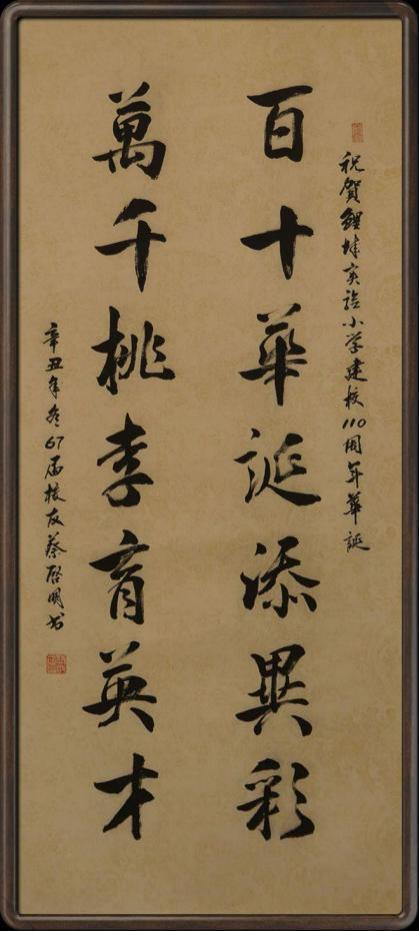 祝贺鲤城实验小学建校110周年华诞
百十華誕添異彩
萬千桃李育英才
辛丑年冬67届校友蔡啓明书